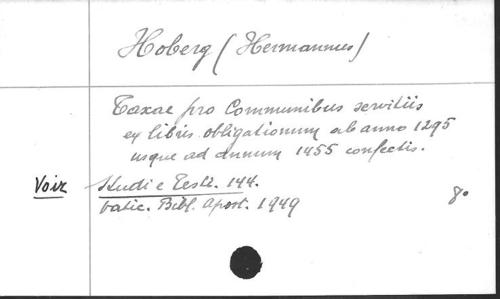 Hoberg (Hermannus)
Taxae pro Communibus servitiis
ex libris obligationum ab anno 1295
usque ad annum 1455 confectis.
Voir Studi e Testi. 144.
Vatic. Bibl. Apost. 1949 8°